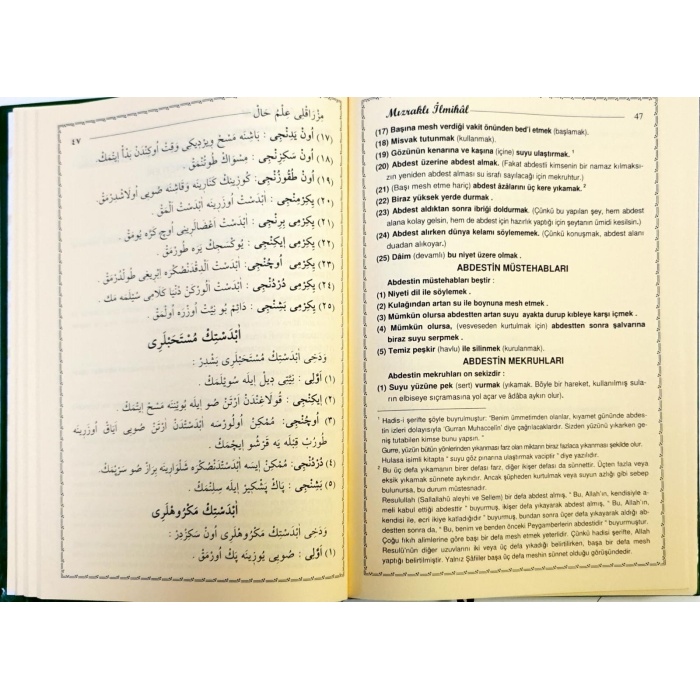 مِزْرَاقْلِى عِلْمُ حَالْ
٤٧
(١٧) اُونْ يَدِنْجِى : بَاشِنَه مَسْحْ وِيرْدِيكِى وَقْتْ اُوكِنْدَنْ بَدْأْ اِيتْمَكْ.
(١٨) اُونْ سَكِزِنْجِى : مِسْوَاكْ طُوتُنْمَقْ.
(١٩) اُونْ طُقُوزُنْجِى: كُوزِينِكْ كَنَارِينَه وَقَاشِنَه صُويِى اُولَاشْدِرْمَقْ.
(٢٠) يِكِرْمِنْجِى : اَبْدَسْتْ اُوزْرِينَه اَبْدَسْتْ اَلْمَقْ.
(٢١) يِكِرْمِى بِرِنْجِى : اَبْدَسْتْ اَعْضَالَرِينِى اُوچْ كَرَّه يُومَقْ.
(٢٢) يِكِرْمِى اِيكِنْجِى : يُوكْسَجِكْ يَرَه طُورْمَقْ.
(٢٣) يِكِرْمِى اُوچُنْجِى: اَبْدَسْتْ اَلْدِقْدَنْصُكْرَه اِبْرِيغِى طُولْدُرْمَقْ.
(٢٤) يِكِرْمِى دُرْدُنْجِى: اَبْدَسْتْ اَلُورْكَنْ دُنْيَا كَلَامِى سُيْلَمَه مَكْ.
(٢٥) يِكِرْمِى بَشِنْجِى : دَائِمْ بُو نِيَّتْ اُوزْرَه اُولْمَقْ.
اَبْدَسْتِكْ مُسْتَحَبْلَرِى
وَدَخِى اَبْدَسْتِكْ مُسْتَحَبْلَرِى بَشْدِرْ :
(١) اَوَّلِى : نِيَّتِى دِيلْ اِيلَه سُويْلَمَكْ.
(٢) اِيكِنْجِى : قُولَاغِنْدَنْ اَرْتَنْ صُو اِيلَه بُويْنِنَه مَسْحْ اِيتْمَكْ.
(٣) اُوچُنْجِى : مُمْكِنْ اُولُورْسَه اَبْدَسْتْدَنْ اَرْتَنْ صُويِى اَيَاقْ اُوزَرِينَه
طُورُبْ قِبْلَه يَه قَرْشُو اِيچْمَكْ.
(٤) دُرْدُنْجِى : مُمْكِنْ اِيسَه اَبْدَسْتْدَنْصُكْرَه شَلْوَارِينَه بِرَازْ صُو سَرْپْمَكْ.
(٥) بَشِنْجِى : پَاكْ پَشْكِيرْ اِيلَه سِلِنْمَكْ.
اَبْدَسْتِكْ مَكْرُوهْلَرِى
وَدَخِى اَبْدَسْتِكْ مَكْرُوهْلَرِى اُونْ سَكِزْدِرْ :
(١) اَوَّلِى : صُويِى يُوزِينَه پَكْ اُورْمَقْ.
Mızraklı İlmihâl
47
(17) Başına mesh verdiği vakit önünden bed'i etmek (başlamak).
(18) Misvak tutunmak (kullanmak).
(19) Gözünün kenarına ve kaşına (içine) suyu ulaştırmak. ¹
(20) Abdest üzerine abdest almak. (Fakat abdestli kimsenin bir namaz kılmaksı-
zın yeniden abdest alması su israfı sayılacağı için mekruhtur.)
(21) (Başı mesh etme hariç) abdest âzâlarını üç kere yıkamak. ²
(22) Biraz yüksek yerde durmak .
(23) Abdest aldıktan sonra ibriği doldurmak. (Çünkü bu yapılan şey, hem abdest
alana kolay gelsin, hem de abdest için hazırlık yaptığı için şeytanın ümidi kesilsin.)
(24) Abdest alırken dünya kelamı söylememek. (Çünkü konuşmak, abdest alanı
duadan alıkoyar.)
(25) Dâim (devamlı) bu niyet üzere olmak .
ABDESTİN MÜSTEHABLARI
Abdestin müstehabları beştir :
(1) Niyeti dil ile söylemek .
(2) Kulağından artan su ile boynuna mesh etmek .
(3) Mümkün olursa abdestten artan suyu ayakta durup kıbleye karşı içmek .
(4) Mümkün olursa, (vesveseden kurtulmak için) abdestten sonra şalvarına
biraz suyu serpmek .
(5) Temiz peşkir (havlu) ile silinmek (kurulanmak).
ABDESTİN MEKRUHLARI
Abdestin mekruhları on sekizdir :
(1) Suyu yüzüne pek (sert) vurmak (yıkamak. Böyle bir hareket, kullanılmış sula-
rın elbiseye sıçramasına yol açar ve âdâba aykırı olur).
¹ Hadis-i şerifte şöyle buyrulmuştur: "Benim ümmetimden olanlar, kıyamet gününde abdes-
tin izleri dolayısıyla "Gurran Muhaccelîn" diye çağrılacaklardır. Sizden yüzünü yıkarken ge-
niş tutabilen kimse bunu yapsın.
Gurre, yüzün bütün yönlerinden yıkanması farz olan miktarın biraz fazlaca yıkanması şekilde olur.
Hulasa isimli kitapta " suyu göz pınarına ulaştırmak vaciptir " diye yazılıdır.
² Bu üç defa yıkamanın birer defası farz, diğer ikişer defası da sünnettir. Üçten fazla veya
eksik yıkamak sünnete aykırıdır. Ancak şüpheden kurtulmak veya suyun azlığı gibi sebep
bulunursa, bu durum müstesnadır.
Resulullah (Sallallahü aleyhi ve Sellem) bir defa abdest almış, " Bu, Allah'ın, kendisiyle a-
meli kabul ettiği abdesttir " buyurmuş, ikişer defa yıkayarak abdest almış, " Bu, Allah'ın,
kendisi ile, ecri ikiye katladığıdır " buyurmuş, bundan sonra üçer defa yıkayarak aldığı ab-
destten sonra da, " Bu, benim ve benden önceki Peygamberlerin abdestidir " buyurmuştur.
Çoğu fıkıh alimlerine göre başı bir defa mesh etmek yeterlidir. Çünkü hadisi şerifte, Allah
Resulü'nün diğer uzuvlarını iki veya üç defa yıkadığı belirtilirken, başa bir defa mesh
yaptığı belirtilmiştir. Yalnız Şâfiîler başa üç defa meshin sünnet olduğu görüşündedir.